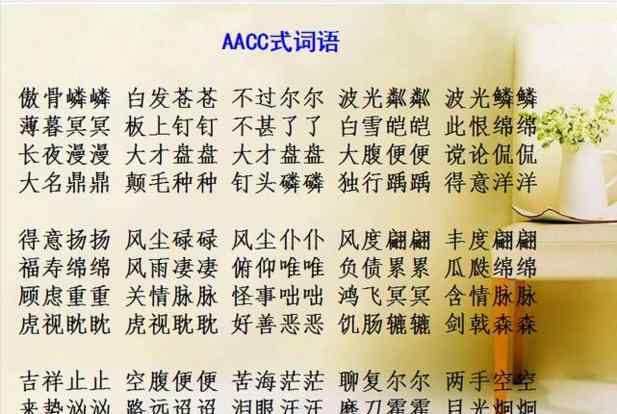 AACC式词语
傲骨嶙嶙 白发苍苍 不过尔尔 波光粼粼 波光鳞鳞
薄暮冥冥 板上钉钉 不甚了了 白雪皑皑 此恨绵绵
长夜漫漫 大才盘盘 大才盘盘 大腹便便 谠论侃侃
大名鼎鼎 颠毛种种 钉头磷磷 独行踽踽 得意洋洋
得意扬扬 风尘碌碌 风尘仆仆 风度翩翩 丰度翩翩
福寿绵绵 风雨凄凄 俯仰唯唯 负债累累 瓜瓞绵绵
顾虑重重 关情脉脉 怪事咄咄 鸿飞冥冥 含情脉脉
虎视眈眈 虎视耽耽 好善恶恶 饥肠辘辘 剑戟森森
吉祥止止 空腹便便 苦海茫茫 聊复尔尔 两手空空
来势汹汹 路远迢迢 泪眼汪汪 磨刀霍霍 目光炯炯